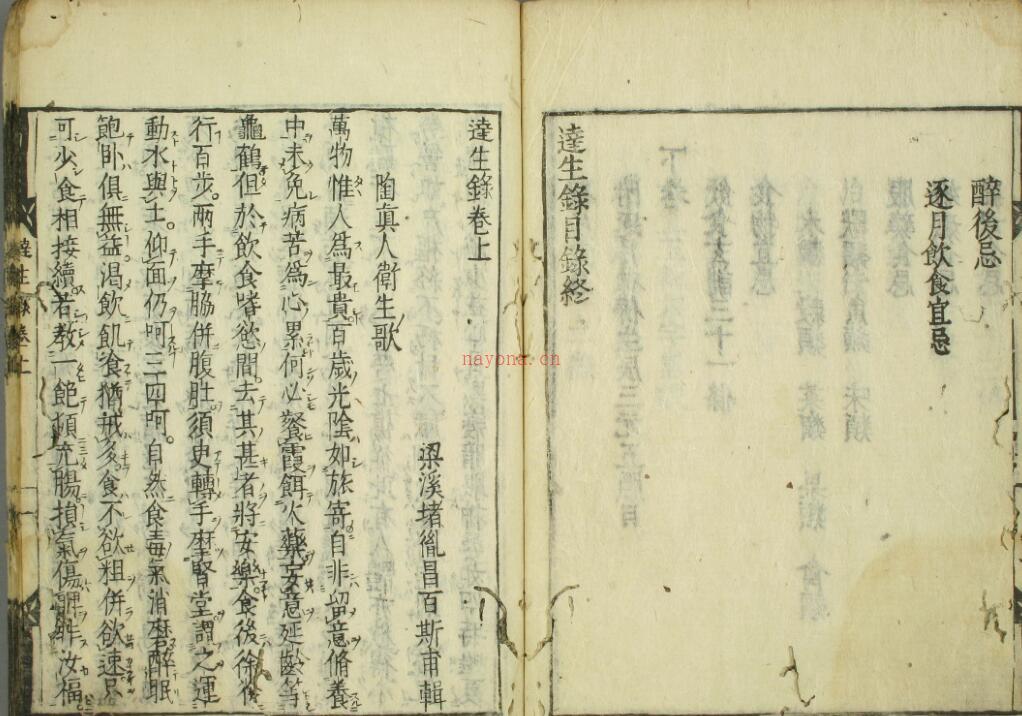 醉後忌
逐月飲食宜忌
達生錄目錄終
達生錄卷上
梁溪堵胤昌百斯甫輯
陶眞人衛生歌
萬物惟人爲最貴百歲光陰如旅寄自非留意脩養
中未免病苦爲心累何必餐霞餌火藥妄意延齡等
龜鶴但於飲食嗜慾間去其甚者將安樂食後徐徐
行百步。兩手摩脇併腹肚須史轉手摩腎堂謂之運
動水與土。仰面仍呵三四呵。自然食毒氣消磨醉眠
飽卧俱無益渴飲飢食猶戒多。食不欲粗併欲速
可少食相接續若教一飽頓充腸損氣傷脾非汝福
達生錄卷上
nayona.cn